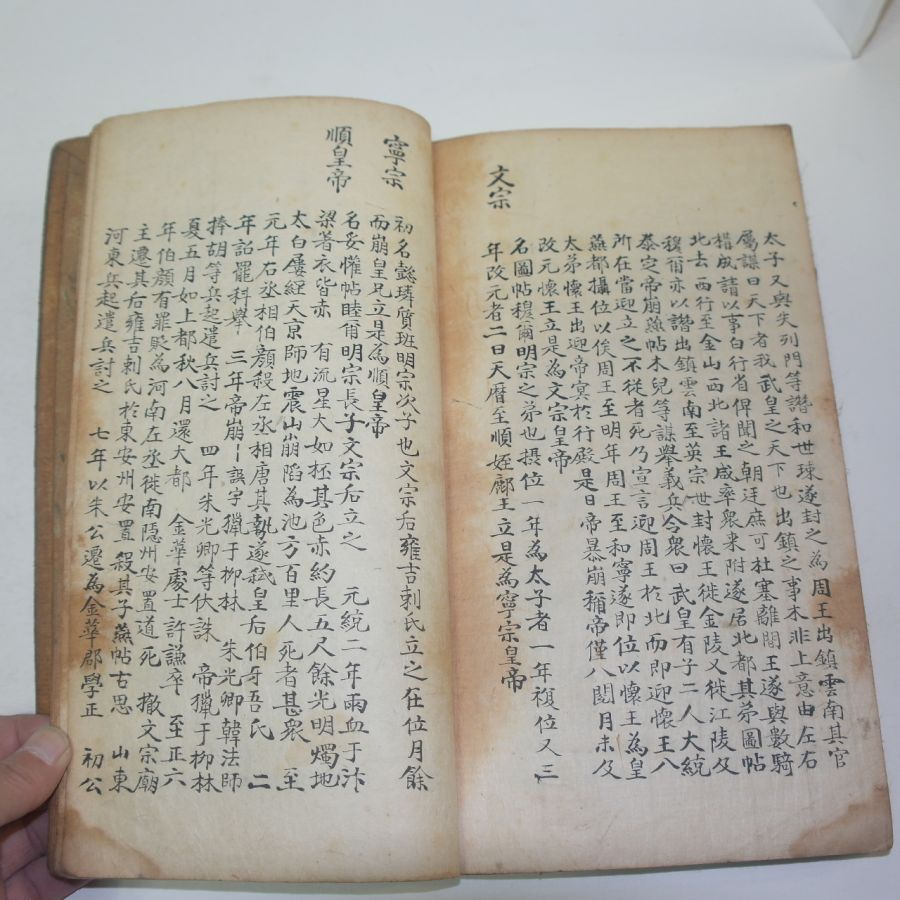 太子又與失列門等譖和世㻋遂封之為周王出鎮雲南其官
屬謀曰天下者我武皇之天下也出鎮之事本非上意由左右
構成請以事白行省俾聞之朝廷庶可杜塞離間王遂與數騎
北去西行至金山西北諸王咸率衆来附遂居北都其弟圖帖
穆爾亦以譖出鎮雲南至英宗世封懷王徙金陵又徙江陵及
泰定帝崩燕帖木兒等謀舉義兵令衆曰武皇有子二人大統
所在當迎立之不從者死乃宣言迎周王於北而即迎懷王入
燕都攝位以俟周王至明年周王至和寧遂即位以懷王為皇
太弟懷王出迎帝寘於行殿是日帝暴崩稱帝僅八閱月未及
改元懷王立是為文宗皇帝
文宗
名圖帖穆爾明宗之弟也摂位一年為太子者一年複位又三
年改元者二曰天曆至順姪鄜王立是為寧宗皇帝
寧宗
初名懿璘質班明宗次子也文宗后雍吉剌氏立之在位月餘
而崩皇兄立是為順皇帝
順皇帝
名妥懽帖睦爾明宗長子文宗后立之 元統二年雨血于汴
梁著衣皆赤 有流星大如杯其色赤約長五尺餘光明燭地
太白屢經天京師地震山崩陷為池方百里人死者甚衆 至
元年右丞相伯顔殺左丞相唐其勢遂弑皇后伯哥吾氏 二
年詔罷科舉 三年帝崩一誤字獵于柳林 朱光卿韓法師
捧胡等兵起遣兵討之 四年朱光卿等伏誅 帝獵于柳林
夏五月如上都秋八月還大都 金華處士許謙卒 至正六
年伯顔有罪貶為河南左丞徙南隱州安置道死 撤文宗廟
主遷其后雍吉剌氏於東安州安置 殺其子燕帖古思 山東
河東兵起遣兵討之 七年以朱公遷為金華郡學正 初公